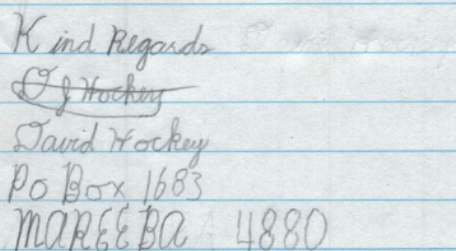 Kind Regards
D J Hockey
David Hockey
PO Box 1683
MAREEBA 4880